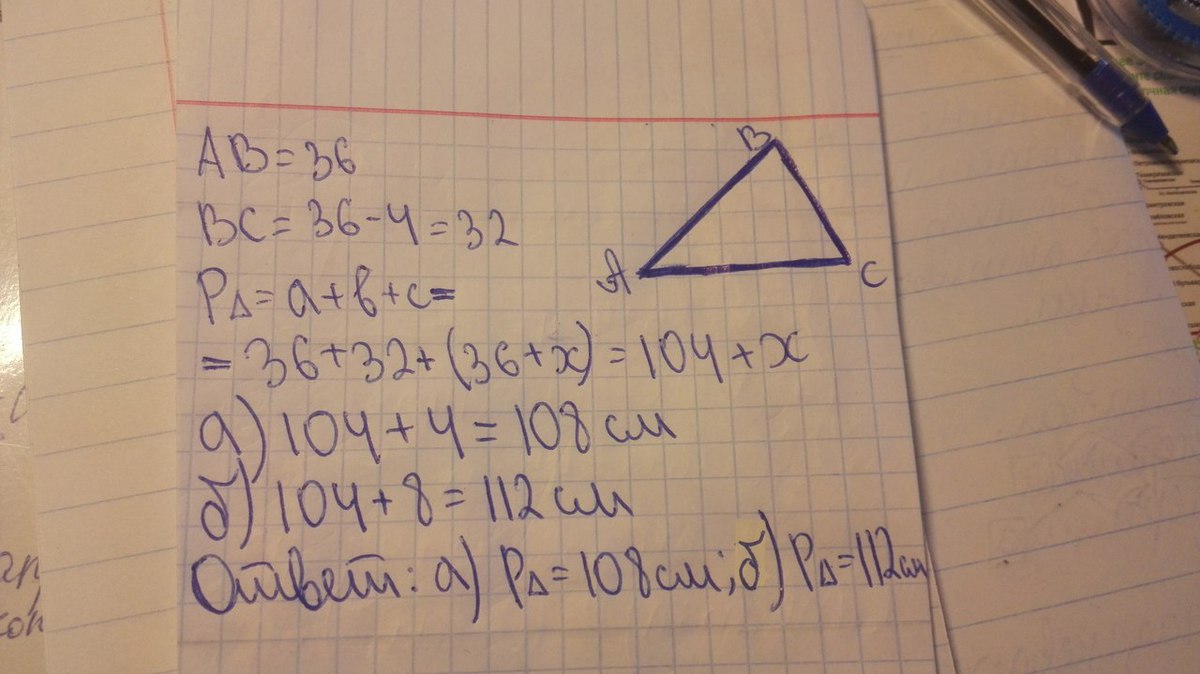 AB = 36
BC = 36 - 4 = 32
P∆ = a + b + c =
= 36 + 32 + (36 + x) = 104 + x
а) 104 + 4 = 108 см
б) 104 + 8 = 112 см
Ответ: а) P∆ = 108 см; б) P∆ = 112 см
B
A
C